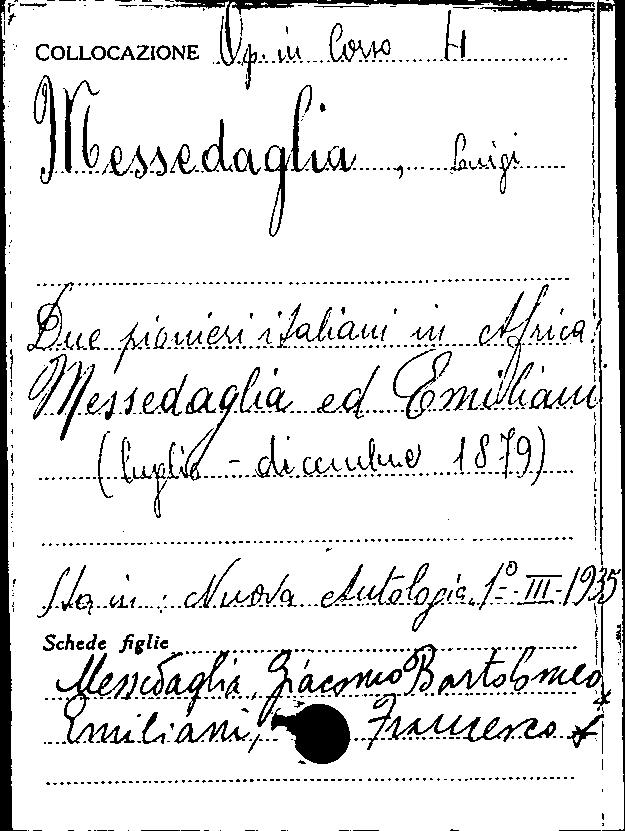 COLLOCAZIONE Op. in Corso H
Messedaglia, Luigi
Due pionieri italiani in Africa:
Messedaglia ed Emiliani
(luglio - dicembre 1879)
Sta in: Nuova Antologia, 1º-III-1935
Schede figlie
Messedaglia, Giacomo Bartolomeo
Emiliani, Francesco